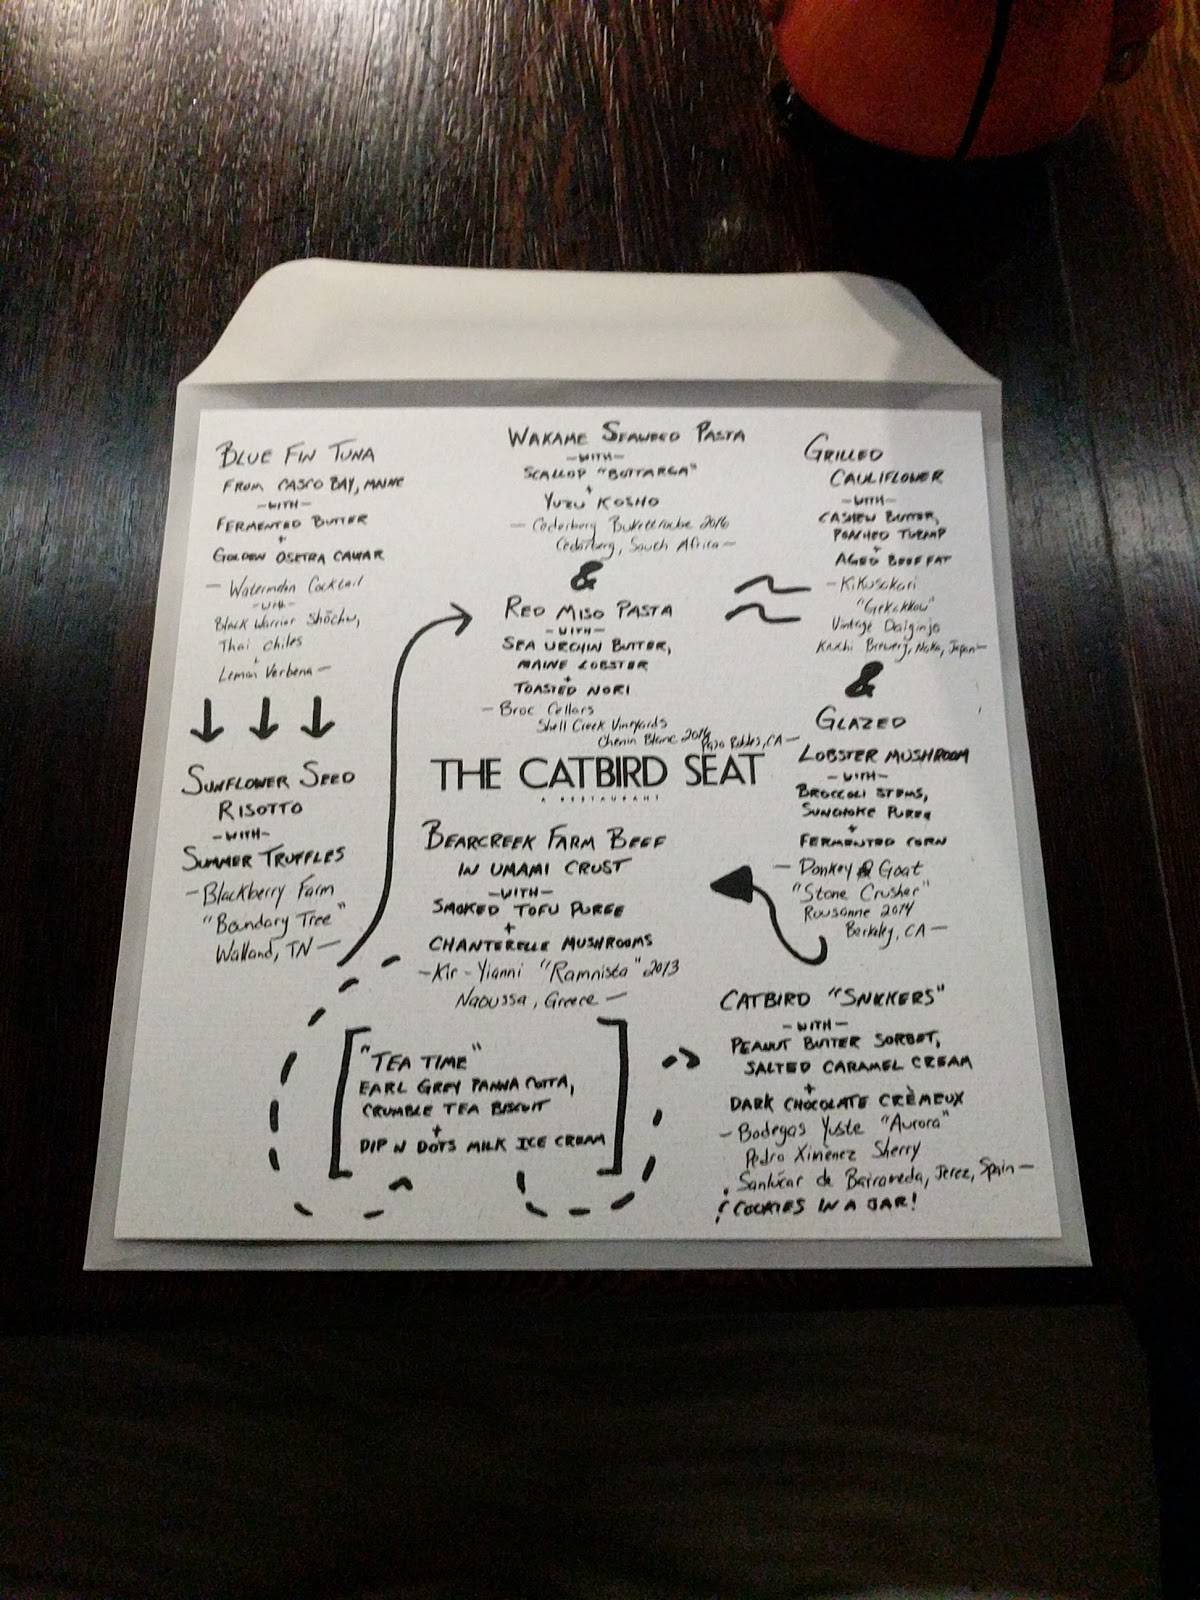 BLUE FIN TUNA
FROM CASCO BAY, MAINE
—WITH—
FERMENTED BUTTER
+
GOLDEN OSETRA CAVIAR
— Watermelon Cocktail
—with—
Black Warrior Shōchu,
Thai chiles
+
Lemon Verbena —
SUNFLOWER SEED
RISOTTO
—WITH—
SUMMER TRUFFLES
— Blackberry Farm
"Boundary Tree"
Walland, TN —
WAKAME SEAWEED PASTA
—WITH—
SCALLOP "BOTTARGA"
+
YUZU KOSHO
— Cederberg Bukettraube 2016
Cederberg, South Africa —
&
RED MISO PASTA
—WITH—
SEA URCHIN BUTTER,
MAINE LOBSTER
+
TOASTED NORI
— Broc Cellars
Shell Creek Vineyards
Chenin Blanc 2016
Paso Robles, CA —
GRILLED
CAULIFLOWER
—WITH—
CASHEW BUTTER,
POACHED TURNIP
+
AGED BEEF FAT
— Kikusakari
Vintage Daiginjo
Kiuchi Brewery, Naka, Japan —
&
GLAZED
LOBSTER MUSHROOM
—WITH—
BROCCOLI STEMS,
SUNCHOKE PUREE
+
FERMENTED CORN
— Donkey & Goat
"Stone Crusher"
Roussanne 2014
Berkeley, CA —
THE CATBIRD SEAT
A RESTAURANT
BEARCREEK FARM BEEF
IN UMAMI CRUST
—WITH—
SMOKED TOFU PUREE
+
CHANTERELLE MUSHROOMS
— Kir-Yianni "Ramnista" 2013
Naoussa, Greece —
"TEA TIME"
EARL GREY PANNA COTTA,
CRUMBLE TEA BISCUIT
+
DIP N DOTS MILK ICE CREAM
CATBIRD "SNICKERS"
—WITH—
PEANUT BUTTER SORBET,
SALTED CARAMEL CREAM
+
DARK CHOCOLATE CRÈMEUX
— Bodegas Yuste "Aurora"
Pedro Ximènez Sherry
Sanlúcar de Barrameda, Jerez, Spain —
¡COOKIES IN A JAR!